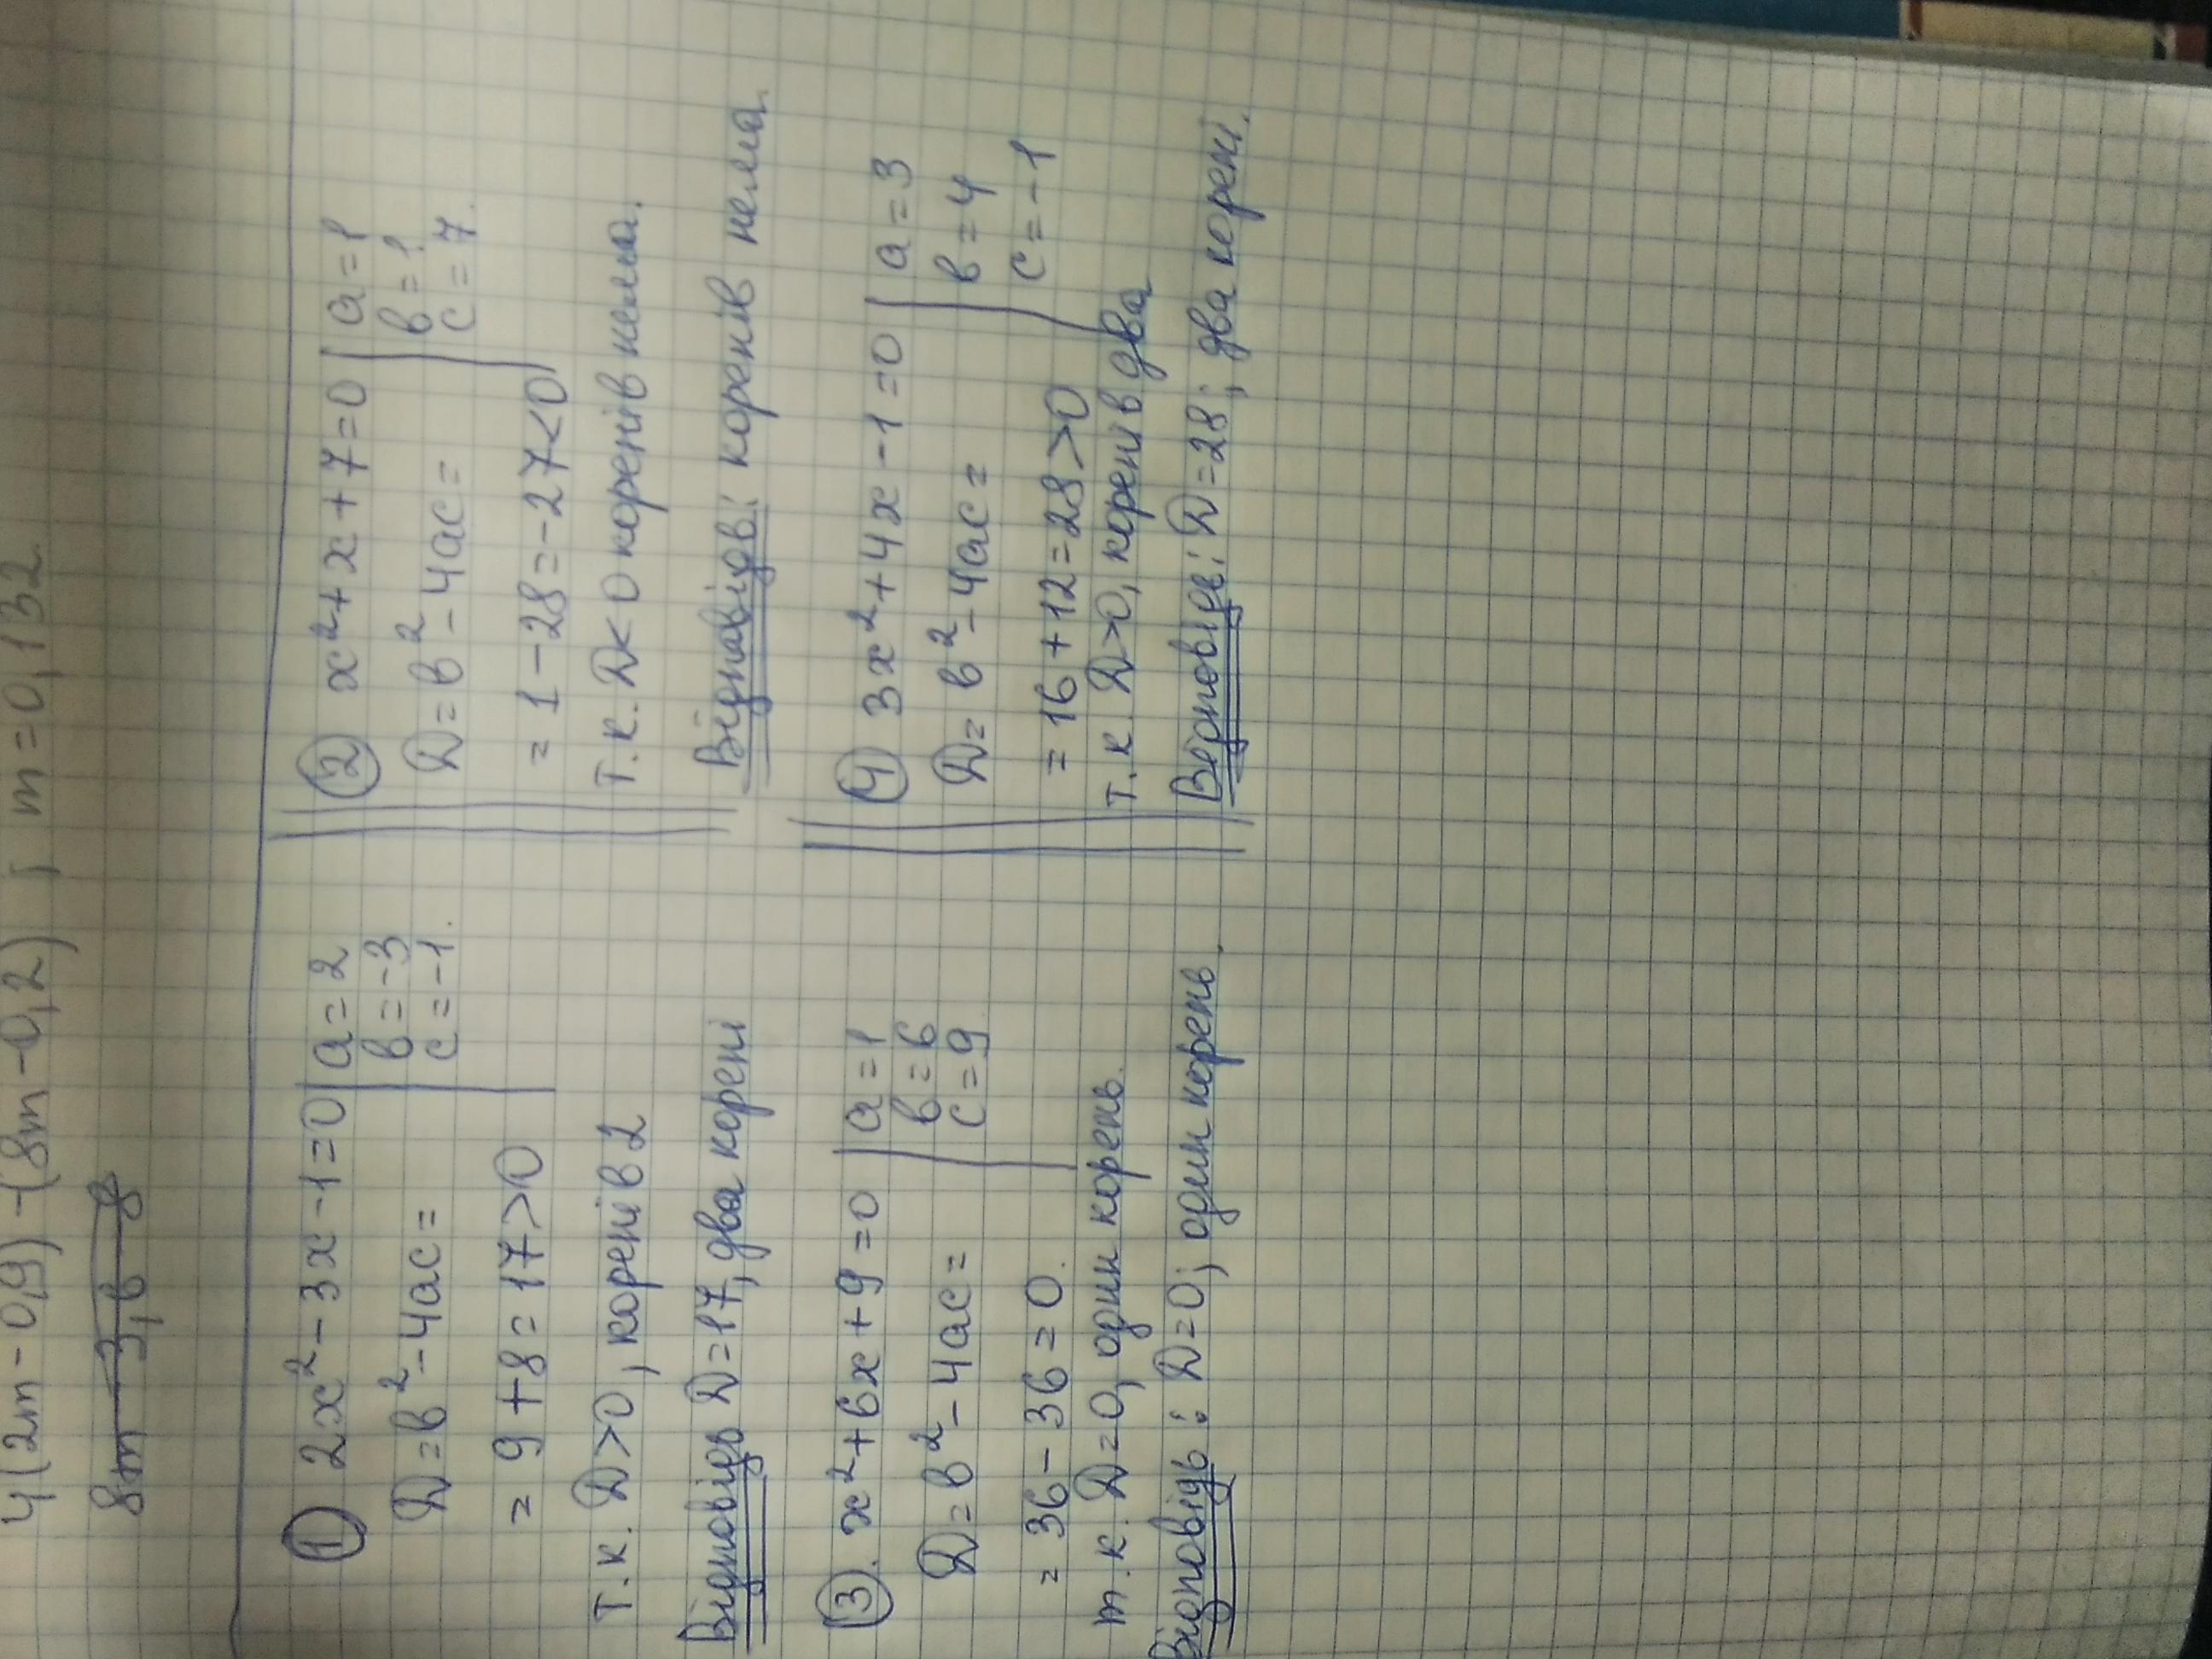 4(2m-0,9)-(8m-0,2) ; m=0,132.
8m-3,6-8
① 2x²-3x-1=0 | a=2
в=-3
c=-1.
D=в²-4ac=
=9+8=17>0
Т.к. D>0, коренів 2
Відповідь D=17, два корені
② x²+x+7=0 | a=1
в=1.
c=7.
D=в²-4ac=
=1-28=-27<0
т.к. D<0 коренів нема.
Відповідь: коренів нема.
③. x²+6x+9=0 | a=1
в=6
c=9
D=в²-4ac=
=36-36=0.
т.к. D=0, один корень.
Відповідь: D=0; один корень.
④ 3x²+4x-1=0 | a=3
в=4
c=-1
D=в²-4ac=
=16+12=28>0
т.к. D>0, коренів два
Відповідь: D=28; два корені.